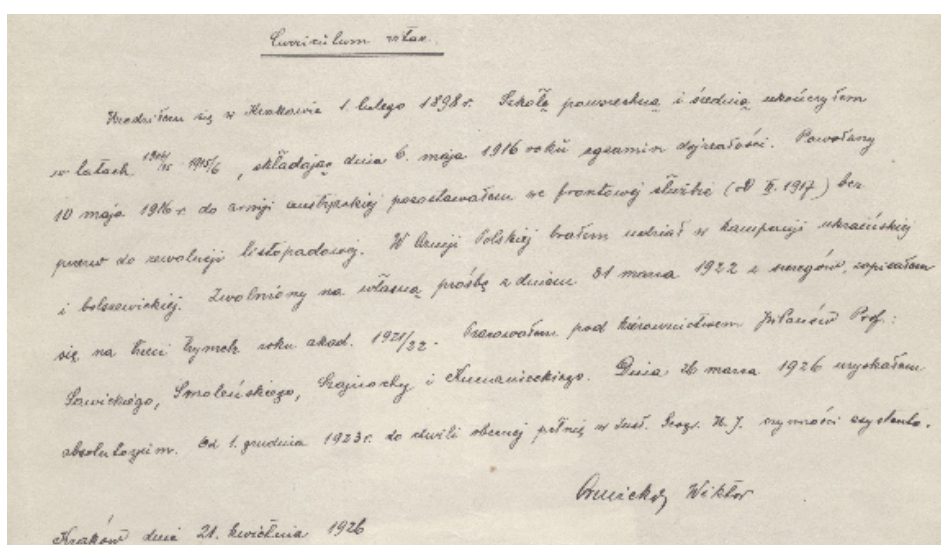 Curriculum vitae.
Urodziłem się w Krakowie 1 lutego 1898 r. Szkołę powszechną i średnią ukończyłem
w latach 1914/15 1915/6, składając dnia 6. maja 1916 roku egzamin dojrzałości. Powołany
10 maja 1916 r. do armji austrjackiej pozostawałem we frontowej służbie (od II. 1917) bez
przerw do rewolucji listopadowej. W Armji Polskiej brałem udział w kampanji ukraińskiej
i bolszewickiej. Zwolniony na własną prośbę z dniem 31 marca 1922 z szeregów, zapisałem
się na trzeci trymestr roku akad. 1921/22. Pracowałem pod kierownictwem Prof.:
Sawickiego, Smoleńskiego, Szajnochy i Kumanieckiego. Dnia 26 marca 1926 uzyskałem
absolutorjum. Od 1. grudnia 1923 r. do chwili obecnej pełnię w Inst. Geogr. U. J. czynności asystenta.
Ormicki Wiktor
Kraków dnia 21. kwietnia 1926